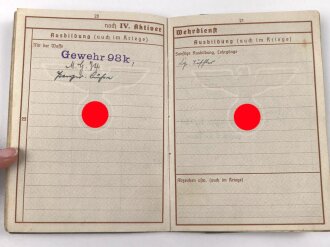 22
noch IV. Aktiver
Ausbildung (auch im Kriege)
Mit der Waffe
Gewehr 98k,
M. G. 34
22
23
Wehrdienst
Ausbildung (auch im Kriege)
Sonstige Ausbildung, Lehrgänge
Abzeichen usw. (auch im Kriege)